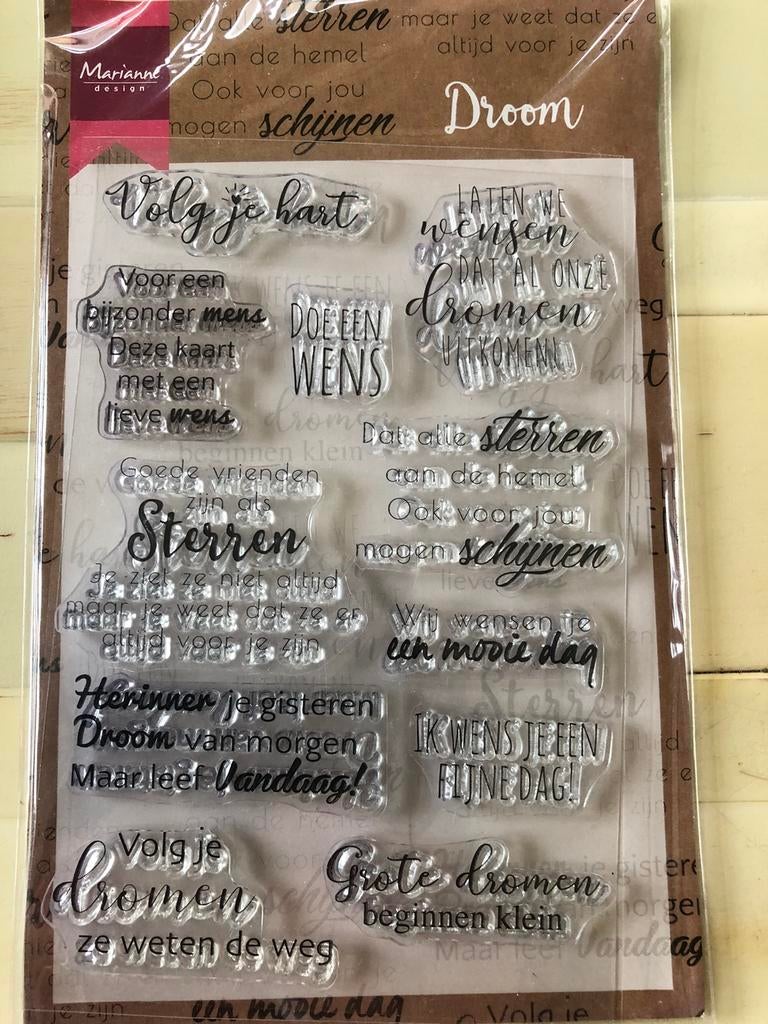 Dat alle sterren
aan de hemel
Ook voor jou
mogen schijnen
maar je weet dat ze e
altijd voor je zijn
Marianne
design
Droom
Volg je hart
LATEN WE
wensen
DAT AL ONZE
dromen
UITKOMEN!
Voor een
bijzonder mens
Deze kaart
met een
lieve wens
DOE EEN
WENS
Dat alle sterren
aan de hemel
Ook voor jou
mogen schijnen
Goede vrienden
zijn als
Sterren
Je ziet ze niet altijd
maar je weet dat ze er
altijd voor je zijn
Wij wensen je
een mooie dag
Herinner je gisteren
Droom van morgen
Maar leef Vandaag!
IK WENS JE EEN
FIJNE DAG!
Volg je
dromen
ze weten de weg
Grote dromen
beginnen klein
een mooie dag
Volg je